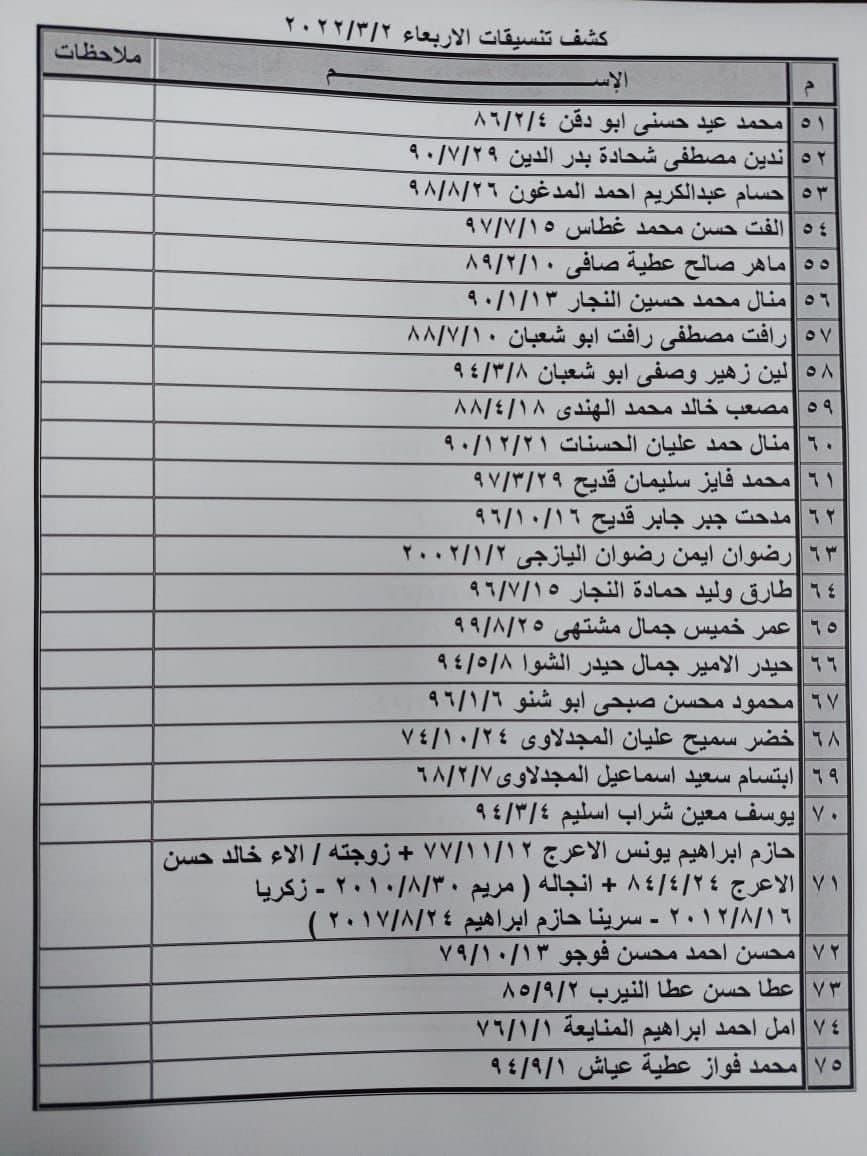 كشف تنسيقات الاربعاء ٢٠٢٢/٣/٢
م الإســــــــــــم ملاحظات
٥١ محمد عيد حسنى ابو دقن ٨٦/٢/٤
٥٢ ندين مصطفى شحادة بدر الدين ٩٠/٧/٢٩
٥٣ حسام عبدالكريم احمد المدغون ٩٨/٨/٢٦
٥٤ الفت حسن محمد غطاس ٩٧/٧/١٥
٥٥ ماهر صالح عطية صافى ٨٩/٢/١٠
٥٦ منال محمد حسين النجار ٩٠/١/١٣
٥٧ رافت مصطفى رافت ابو شعبان ٨٨/٧/١٠
٥٨ لين زهير وصفى ابو شعبان ٩٤/٣/٨
٥٩ مصعب خالد محمد الهندى ٨٨/٤/١٨
٦٠ منال حمد عليان الحسنات ٩٠/١٢/٢١
٦١ محمد فايز سليمان قديح ٩٧/٣/٢٩
٦٢ مدحت جبر جابر قديح ٩٦/١٠/١٦
٦٣ رضوان ايمن رضوان اليازجى ٢٠٠٢/١/٢
٦٤ طارق وليد حمادة النجار ٩٦/٧/١٥
٦٥ عمر خميس جمال مشتهى ٩٩/٨/٢٥
٦٦ حيدر الامير جمال حيدر الشوا ٩٤/٥/٨
٦٧ محمود محسن صبحى ابو شنو ٩٦/١/٦
٦٨ خضر سميح عليان المجدلاوى ٧٤/١٠/٢٤
٦٩ ابتسام سعيد اسماعيل المجدلاوى٦٨/٢/٧
٧٠ يوسف معين شراب اسليم ٩٤/٣/٤
حازم ابراهيم يونس الاعرج ٧٧/١١/١٢ + زوجته / الاء خالد حسن
٧١ الاعرج ٨٤/٤/٢٤ + انجاله ( مريم ٢٠١٠/٨/٣٠ - زكريا
٢٠١٢/٨/١٦ - سرينا حازم ابراهيم ٢٠١٧/٨/٢٤ )
٧٢ محسن احمد محسن فوجو ٧٩/١٠/١٣
٧٣ عطا حسن عطا النيرب ٨٥/٩/٢
٧٤ امل احمد ابراهيم المنايعة ٧٦/١/١
٧٥ محمد فواز عطية عياش ٩٤/٩/١